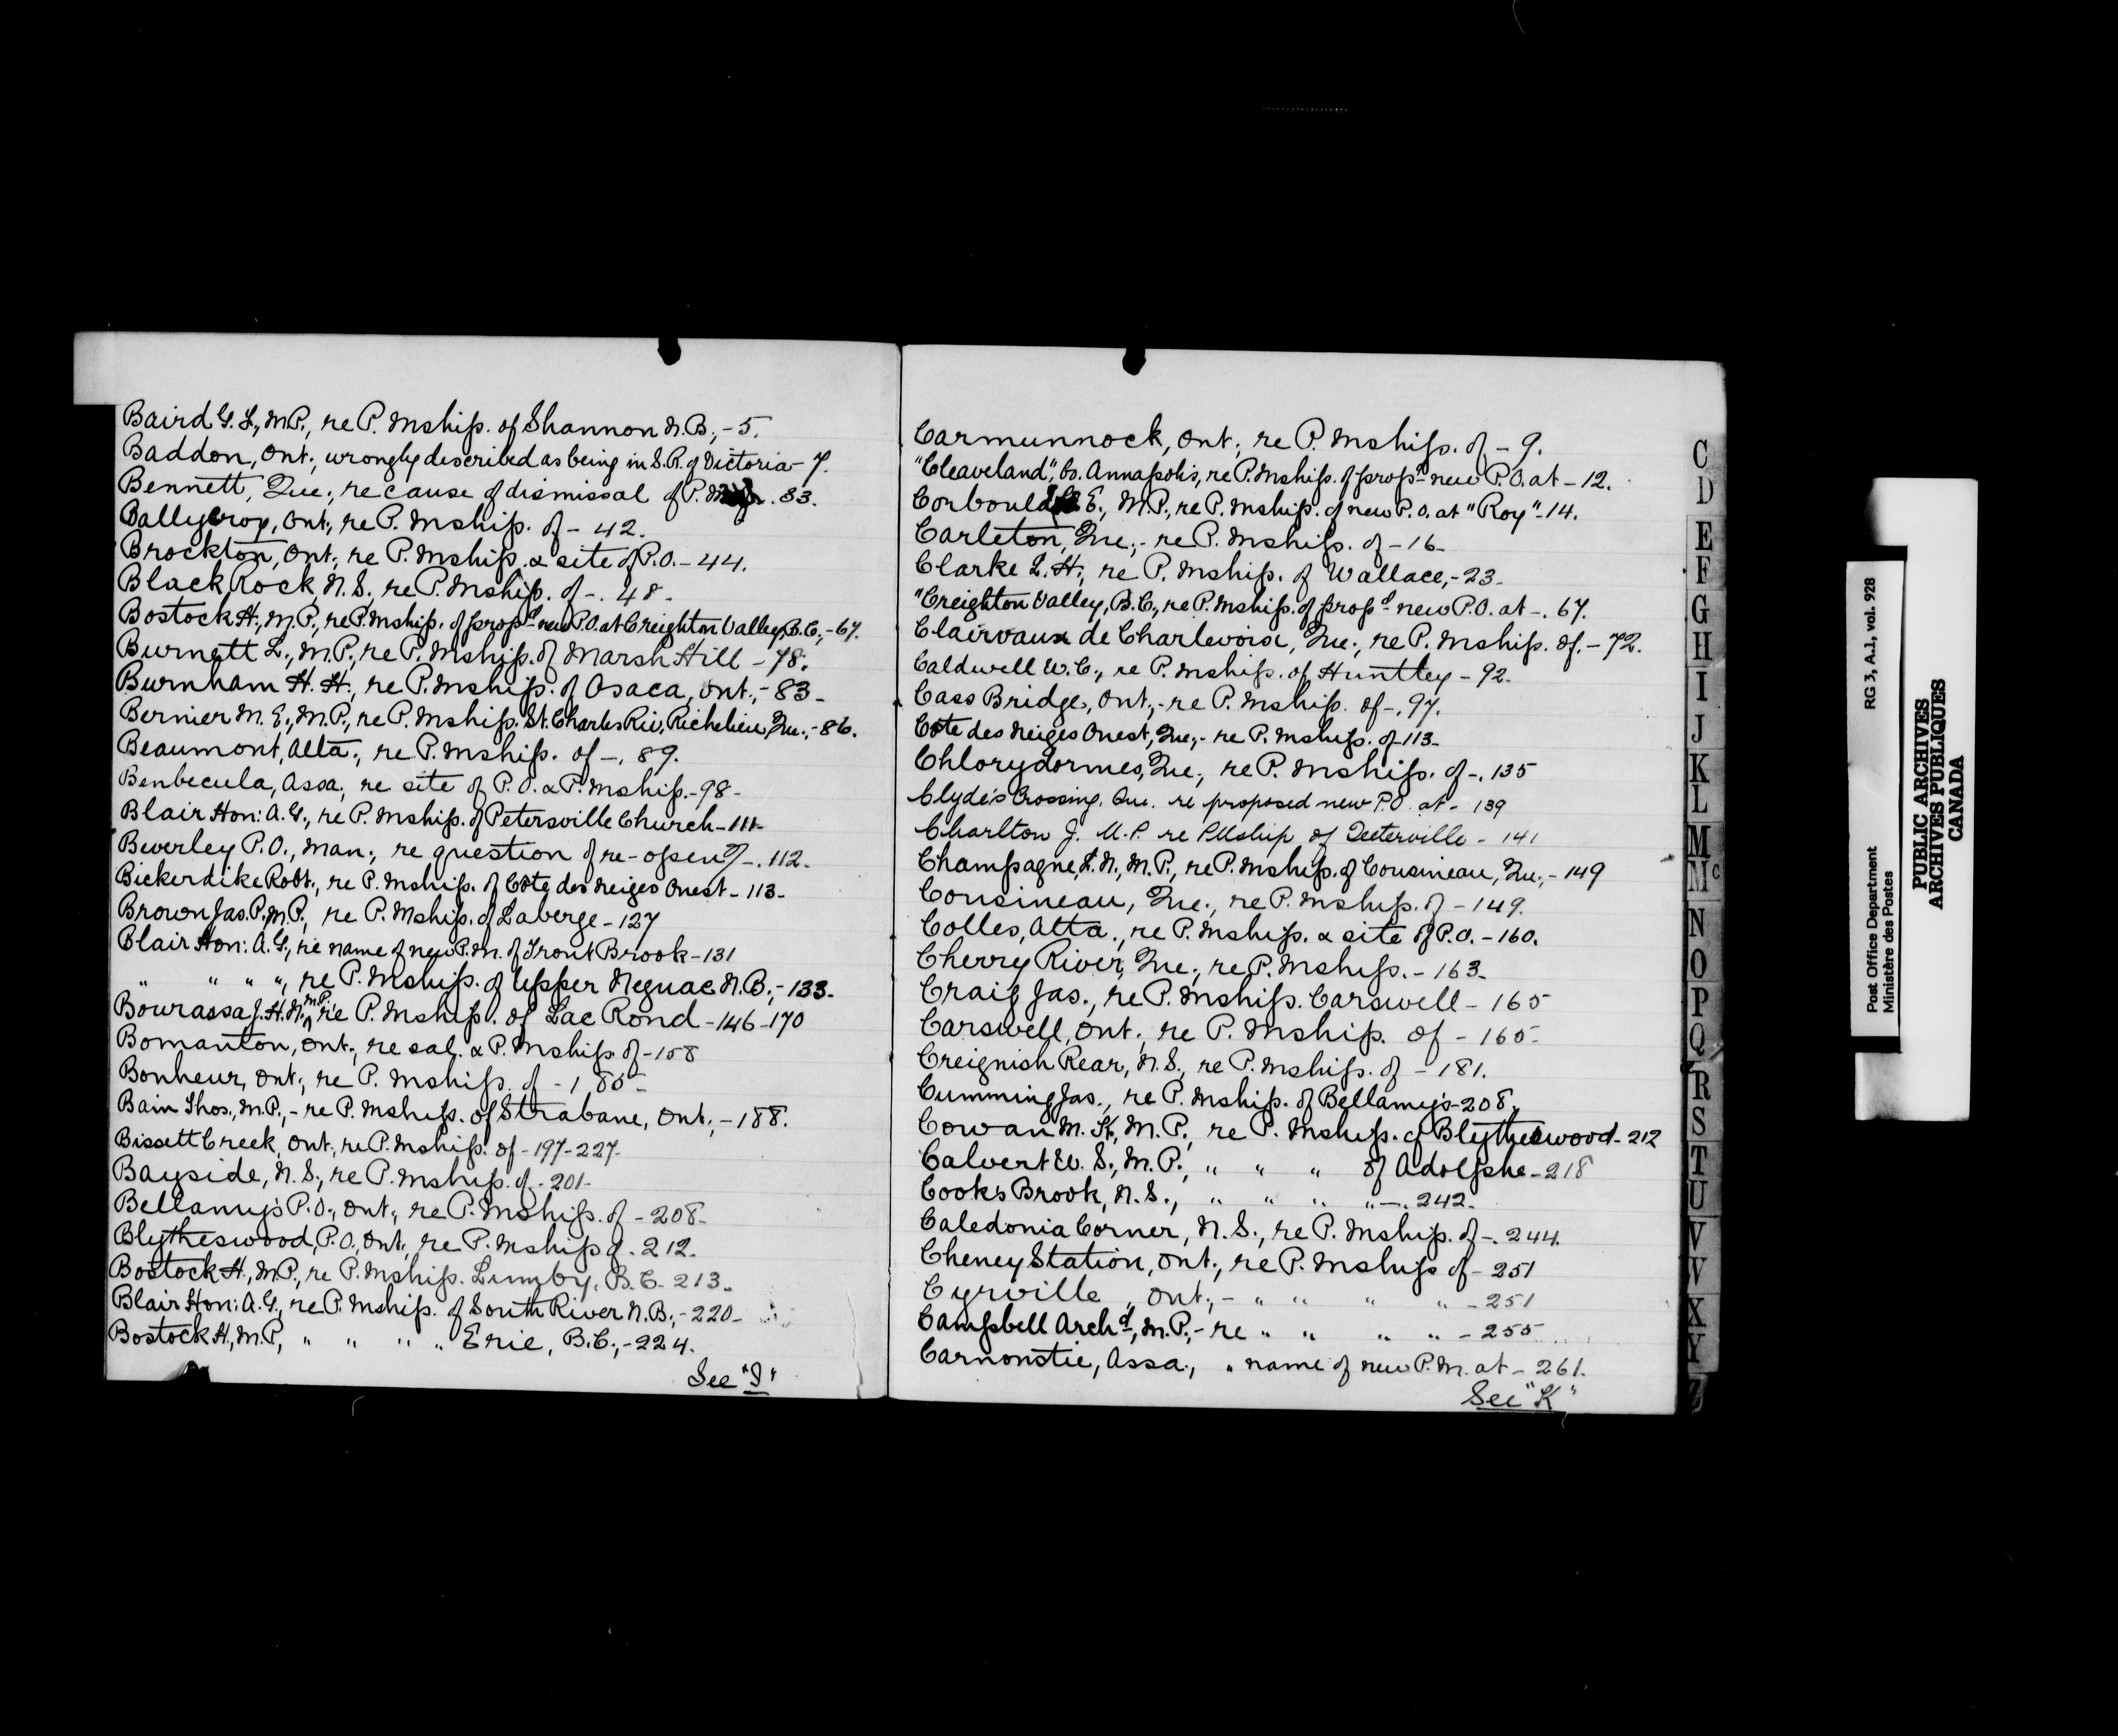 Baird G. L., M.P., re P. Mship. of Shannon N.B., - 5.
Baddon, Ont., wrongly described as being in S.R. of Victoria - 7.
Bennett, Que., re cause of dismissal of P. 33.
Ballycroy, Ont., re P. Mship. of - 42.
Brockton, Ont., re P. Mship. & site of P.O. - 44.
Black Rock, N.S., re P. Mship. of -. 48.
Bostock H., M.P., re P. Mship. of propd new P.O. at Creighton Valley, B.C., - 67.
Burnett L., M.P., re P. Mship. of Marsh Hill - 78.
Burnham H. H., re P. Mship. of Osaca, Ont., - 83 -
Bernier M. E., M.P., re P. Mship. St. Charles Riv. Richelieu, Que., - 86.
Beaumont, Alta., re P. Mship. of -. 89.
Benbecula, Assa., re site of P.O. & P. Mship. - 98 -
Blair Hon: A. G., re P. Mship. of Petersville Church - 111 -
Beverley P.O., Man., re question of re-openg -. 112 -
Bickerdike Robt., re P. Mship. of Côte des Neiges Ouest - 113 -
Brown Jas. P. M.P., re P. Mship. of Laberge - 127
Blair Hon: A. G., re name of new P.M. of Trout Brook - 131
" " " ", re P. Mship. of Upper Neguac N.B., - 133 -
Bourassa J. H. N. M.P. re P. Mship. of Lac Rond - 146 - 170
Bomanton, Ont., re sal. & P. Mship. of - 158
Bonheur, Ont., re P. Mship. of - 185 -
Bain Thos., M.P., - re P. Mship. of Strabane, Ont., - 188.
Bissett Creek, Ont., re P. Mship. of - 197 - 227 -
Bayside, N.S., re P. Mship. of - 201 -
Bellamy's P.O., Ont., re P. Mship. of - 208 -
Blytheswood, P.O., Ont., re P. Mship of . 212.
Bostock H., M.P., re P. Mship. Lumby, B.C. - 213.
Blair Hon: A. G., re P. Mship. of South River N.B., - 220 -
Bostock H., M.P., " " " " Erie, B.C., - 224.
See "I"
Carmunnock, Ont., re P. Mship. of - 9.
"Cleaveland", Co. Annapolis, re P. Mship. of propd new P.O. at - 12.
Corbould E., M.P., re P. Mship. of new P.O. at "Roy" - 14.
Carleton, Que., - re P. Mship. of - 16 -
Clarke L. H., re P. Mship. of Wallace, - 23 -
"Creighton Valley, B.C., re P. Mship. of propd new P.O. at -. 67.
Clairvaux de Charlevoix, Que., re P. Mship. of. - 72.
Caldwell W. C., re P. Mship. of Huntley - 92.
Cass Bridge, Ont., - re P. Mship. of -. 97.
Côte des Neiges Ouest, Que., - re P. Mship. of - 113 -
Chlorydormes, Que., re P. Mship. of -. 135
Clyde's Crossing, Que. re proposed new P.O. at - 139
Charlton J. M.P. re PMship of Teeterville - 141
Champagne, L. N., M.P., re P. Mship. of Cousineau, Que., - 149
Cousineau, Que., re P. Mship. of - 149.
Colles, Alta., re P. Mship. & site of P.O. - 160.
Cherry River, Que., re P. Mship. - 163 -
Craig Jas., re P. Mship. Carswell - 165
Carswell, Ont., re P. Mship. of - 165 -
Creignish Rear, N.S., re P. Mship. of - 181.
Cumming Jas., re P. Mship. of Bellamy's - 208.
Cowan M. K., M.P., re P. Mship. of Blytheswood - 212
Calvert W. S., M.P., " " " of Adolphe - 218
Cook's Brook, N.S., " " " " -. 242.
Caledonia Corner, N.S., re P. Mship. of -. 244.
Cheney Station, Ont., re P. Mship of - 251
Cyrville, Ont., - " " " " - 251
Campbell Archd, M.P., - re " " " " - 255
Carnonstie, Assa., " name of new P.M. at - 261.
See "K"
C
D
E
F
G
H
I
J
K
L
M
Mc
N
O
P
Q
R
S
T
U
V
W
X
Y
Z
Post Office Department RG 3, A.1, vol. 928
Ministère des Postes
PUBLIC ARCHIVES
ARCHIVES PUBLIQUES
CANADA